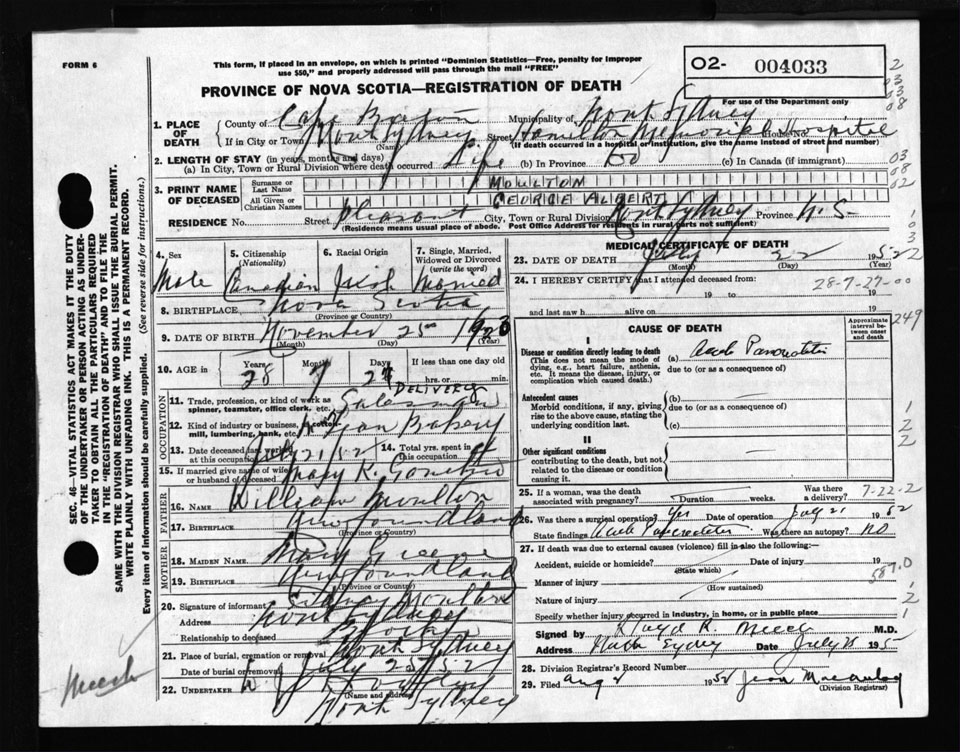 FORM 6
This form, if placed in an envelope, on which is printed "Dominion Statistics—Free, penalty for improper
use $50," and properly addressed will pass through the mail "FREE"
02- 004033
For use of the Department only
2
03
03
08
PROVINCE OF NOVA SCOTIA—REGISTRATION OF DEATH
1. PLACE OF DEATH { County of Cape Breton Municipality of North Sydney
If in City or Town North Sydney (Name) Street Hamilton Memorial Hospital House No.
(If death occurred in a hospital or institution, give the name instead of street and number)
2. LENGTH OF STAY (in years, months and days)
(a) In City, Town or Rural Division where death occurred Life (b) In Province Do (c) In Canada (if immigrant)
03
08
02
3. PRINT NAME OF DECEASED { Surname or Last Name MOULTON
All Given or Christian Names GEORGE ALBERT
RESIDENCE No. Street Pleasant City, Town or Rural Division North Sydney Province N.S.
(Residence means usual place of abode. Post Office Address for residents in rural parts not sufficient)
4. SEX 5. Citizenship (Nationality) 6. Racial Origin 7. Single, Married, Widowed or Divorced (write the word)
Male Canadian Irish Married
8. BIRTHPLACE Nova Scotia
(Province or Country)
9. DATE OF BIRTH November 25 1923
(Month) (Day)
10. AGE in { Years Months Days If less than one day old
28 7 27 hrs. or min.
OCCUPATION
11. Trade, profession, or kind of work as spinner, teamster, office clerk, etc. DELIVERY Salesman
12. Kind of industry or business, as cotton mill, lumbering, bank, etc. Bakery
13. Date deceased last worked at this occupation July 21/52 14. Total yrs. spent in this occupation
15. If married give name of wife or husband of deceased Mary R.
FATHER
16. NAME William Moulton
17. BIRTHPLACE Newfoundland
(Province or Country)
MOTHER
18. MAIDEN NAME Mary Greene
19. BIRTHPLACE Newfoundland
(Province or Country)
20. Signature of informant Moulton
Address North Sydney
Relationship to deceased Brother
21. Place of burial, cremation or removal North Sydney
Date of burial or removal July 25/52
22. UNDERTAKER
(Name and address)
North Sydney
MEDICAL CERTIFICATE OF DEATH
23. DATE OF DEATH July 22 1952
(Month) (Day) (Year)
24. I HEREBY CERTIFY that I attended deceased from:
28-7-27-00
19 to 19
and last saw h alive on 19
249
CAUSE OF DEATH
Approximate interval between onset and death
I
Disease or condition directly leading to death
(This does not mean the mode of dying, e.g., heart failure, asthenia, etc. It means the disease, injury, or complication which caused death.)
(a) Acute Pancreatitis
due to (or as a consequence of)
Antecedent causes
Morbid conditions, if any, giving rise to the above cause, stating the underlying condition last.
(b)
due to (or as a consequence of)
(c)
II
Other significant conditions
contributing to the death, but not related to the disease or condition causing it.
25. If a woman, was the death associated with pregnancy? Duration weeks. Was there a delivery?
7-22-2
26. Was there a surgical operation? Yes Date of operation July 21 1952
State findings Acute Pancreatitis Was there an autopsy? No
27. If death was due to external causes (violence) fill in also the following:—
Accident, suicide or homicide? (State which) Date of injury 19
587.0
Manner of injury (How sustained)
Nature of injury
Specify whether injury occurred in industry, in home, or in public place
Signed by Lloyd R. Meech M.D.
Address North Sydney Date July 195
28. Division Registrar's Record Number
29. Filed Aug 1952 Jean
(Division Registrar)
SEC. 46—VITAL STATISTICS ACT MAKES IT THE DUTY
OF THE UNDERTAKER OR PERSON ACTING AS UNDER-
TAKER TO OBTAIN ALL THE PARTICULARS REQUIRED
IN THE "REGISTRATION OF DEATH" AND TO FILE THE
SAME WITH THE DIVISION REGISTRAR WHO SHALL ISSUE THE BURIAL PERMIT.
WRITE PLAINLY WITH UNFADING INK. THIS IS A PERMANENT RECORD.
Every item of information should be carefully supplied. (See reverse side for instructions.)
Meech